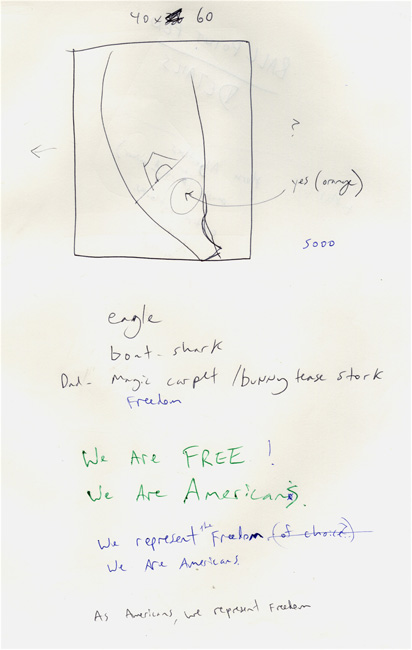 40 x 60
?
yes (orange)
5000
eagle
boat-shark
Dad- Magic carpet / bunny tease stork
Freedom
We Are FREE!
We Are Americans.
We represent the Freedom (of choice?)
We Are Americans.
As Americans, we represent Freedom